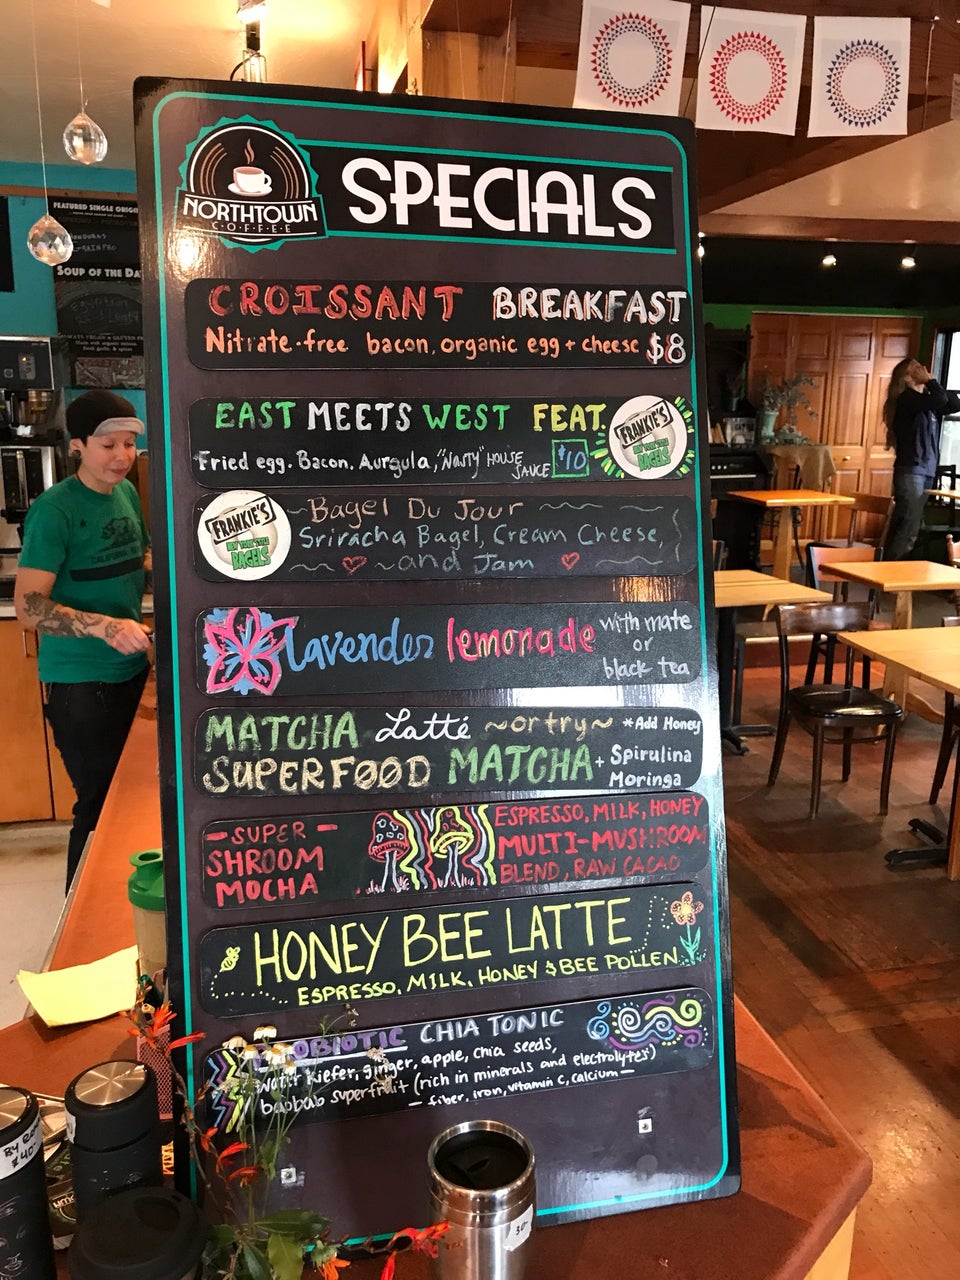 NORTHTOWN
COFFEE
SPECIALS
FEATURED SINGLE ORIGIN
HONDURAS
SOUP OF THE DAY
CROISSANT BREAKFAST
Nitrate-free bacon, organic egg + cheese $8
EAST MEETS WEST FEAT.
FRANKIE'S
NEW YORK STYLE
BAGELS
Fried egg. Bacon. Aurgula, "NASTY" HOUSE SAUCE $10
FRANKIE'S
NEW YORK STYLE
BAGELS
Bagel Du Jour
Sriracha Bagel, Cream Cheese,
and Jam
lavender lemonade with mate
or
black tea
MATCHA Latté ~or try~ *Add Honey
SUPERFØØD MATCHA + Spirulina
Moringa
-SUPER-
SHROOM
MOCHA
ESPRESSO, MILK, HONEY
MULTI-MUSHROOM
BLEND, RAW CACAO
HONEY BEE LATTE
ESPRESSO, MILK, HONEY & BEE POLLEN
CHIA TONIC
water kiefer, ginger, apple, chia seeds,
baobab superfruit (rich in minerals and electrolytes)
- fiber, iron, vitamin c, calcium -